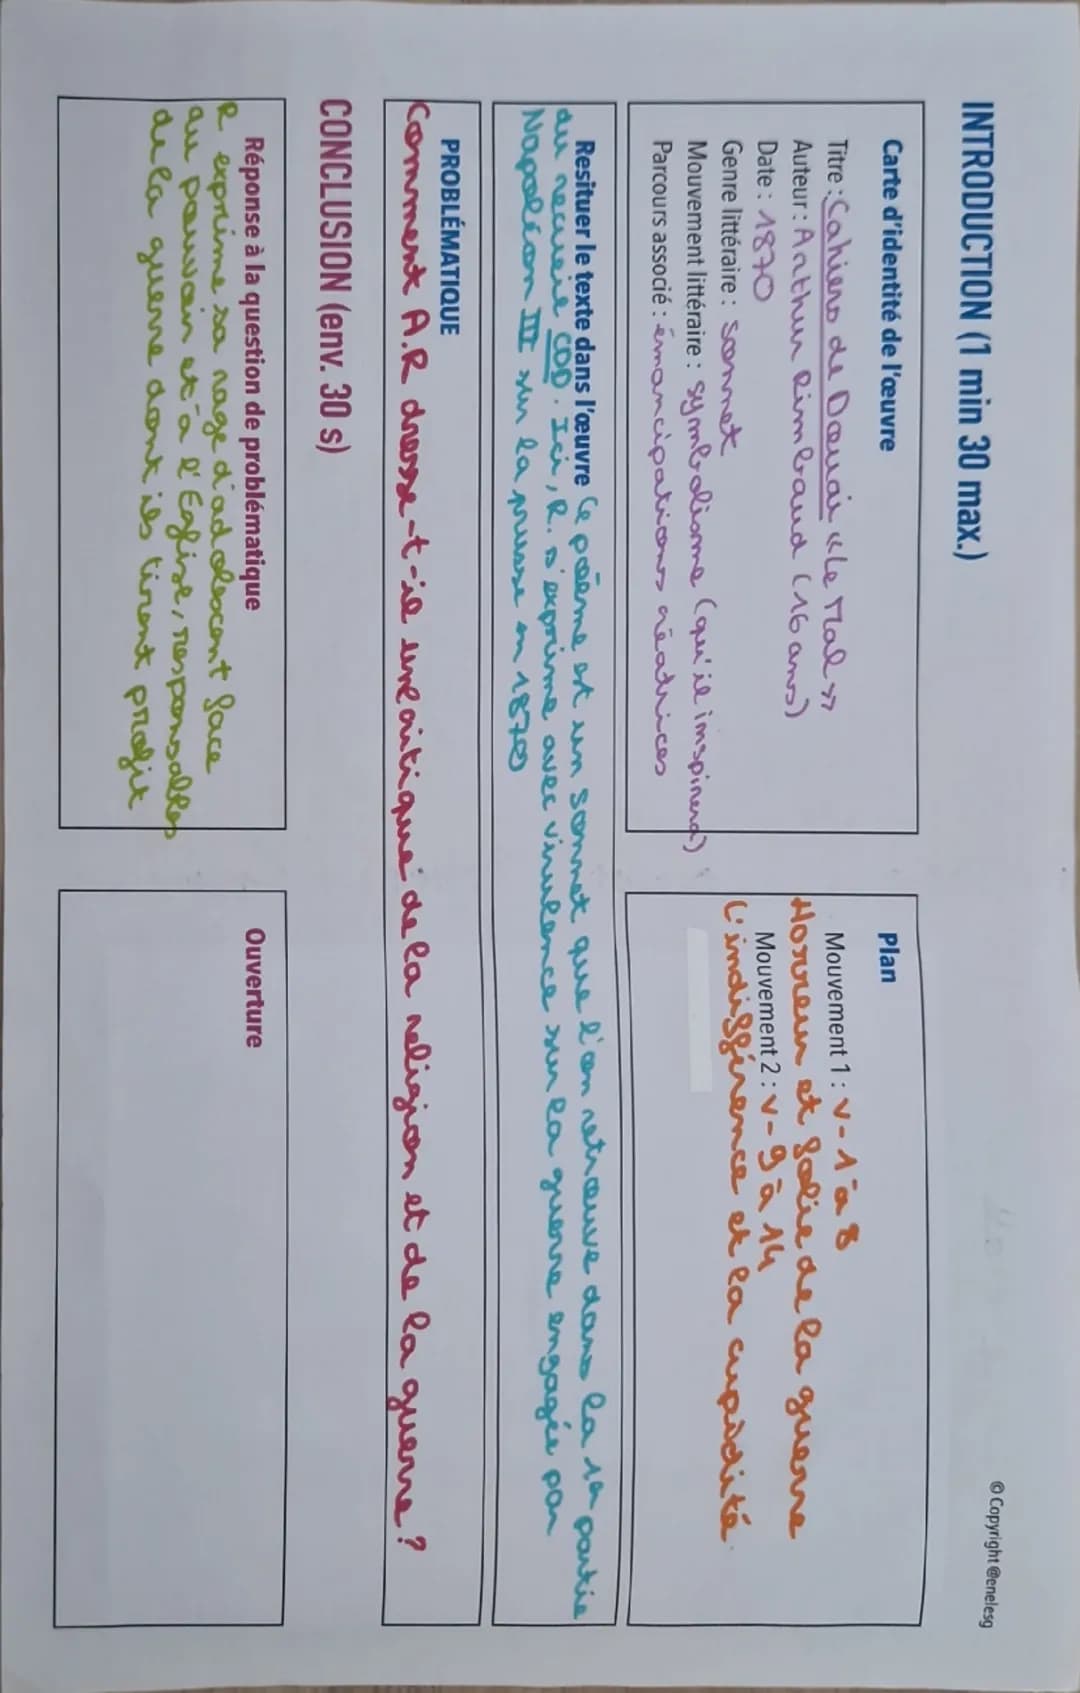 © Copyright @enelesg
INTRODUCTION (1 min 30 max.)
Carte d'identité de l'œuvre
Titre : Cahiers de Douai « Le Mal »
Auteur : Arthur Rimbaud (16 ans)
Date : 1870
Genre littéraire : sonnet
Mouvement littéraire : symbolisme (qu'il inspirera)
Parcours associé : émancipations créatrices
Plan
Mouvement 1 : v-1 à 8
Horreur et folie de la guerre
Mouvement 2 : v-9 à 14
L'indifférence et la cupidité
Resituer le texte dans l'œuvre Ce poème est un sonnet que l'on retrouve dans la 1e partie
du recueil CDD. Ici, R. s'exprime avec virulence sur la guerre engagée par
Napoléon III sur la prusse en 1870
PROBLÉMATIQUE
Comment A.R dresse-t-il une critique de la religion et de la guerre ?
CONCLUSION (env. 30 s)
Réponse à la question de problématique
R exprime sa rage d'adolescent face
au pouvoir et à l'Eglise, responsables
de la guerre dont ils tirent profit
Ouverture